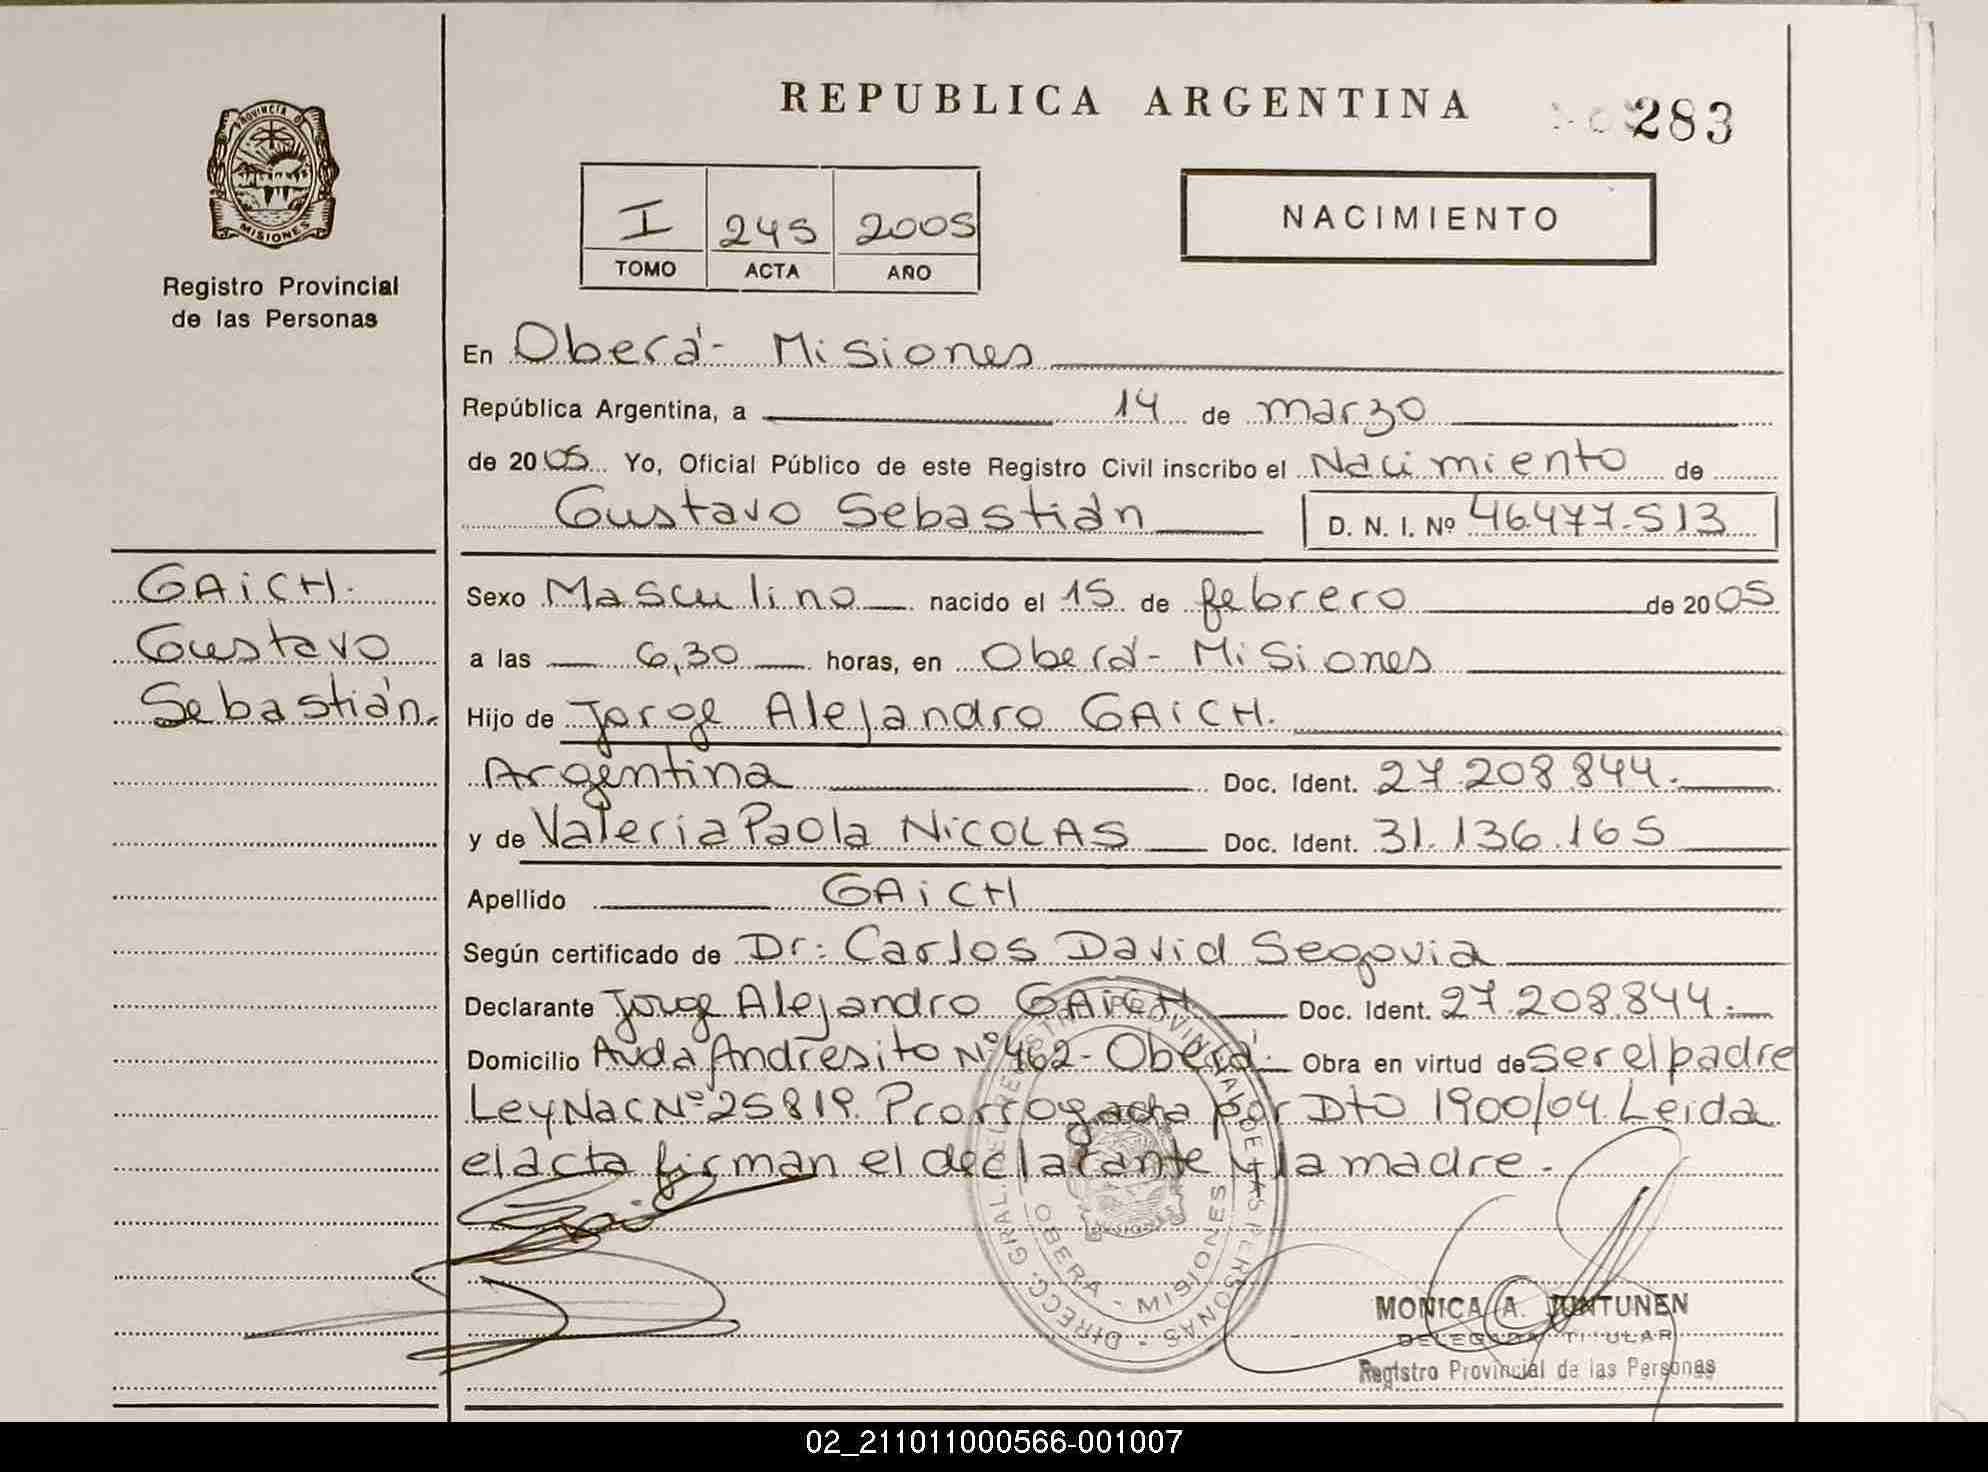 REPUBLICA ARGENTINA
283
PROVINCIA D
MISIONES
Registro Provincial
de las Personas
I 245 2005
TOMO ACTA AÑO
NACIMIENTO
En Oberá - Misiones
República Argentina, a 14 de marzo
de 2005 Yo, Oficial Público de este Registro Civil inscribo el Nacimiento de
Gustavo Sebastián D. N. I. Nº 46.477.513
GAiCH.
Gustavo
Sebastián.
Sexo Masculino nacido el 15 de febrero de 2005
a las 6,30 horas, en Oberá - Misiones
Hijo de Jorge Alejandro GAiCH.
Argentina Doc. Ident. 27.208.844.
y de Valeria Paola NiCOLAS Doc. Ident. 31.136.165
Apellido GAiCH
Según certificado de Dr: Carlos David Segovia
Declarante Jorge Alejandro GAiCH Doc. Ident. 27.208.844.
Domicilio Avda Andresito Nº 462 - Oberá. Obra en virtud de Ser el padre
Ley Nac Nº 25819. Prorrogada por Dto 1900/04. Leida
el acta firman el declarante y la madre.
DIRECC. GRAL. DEL REGISTRO PROVINCIAL DE LAS PERSONAS
OBERA - MISIONES
MONICA A. JUNTUNEN
DELEGADA TITULAR
Registro Provincial de las Personas
02_211011000566-001007